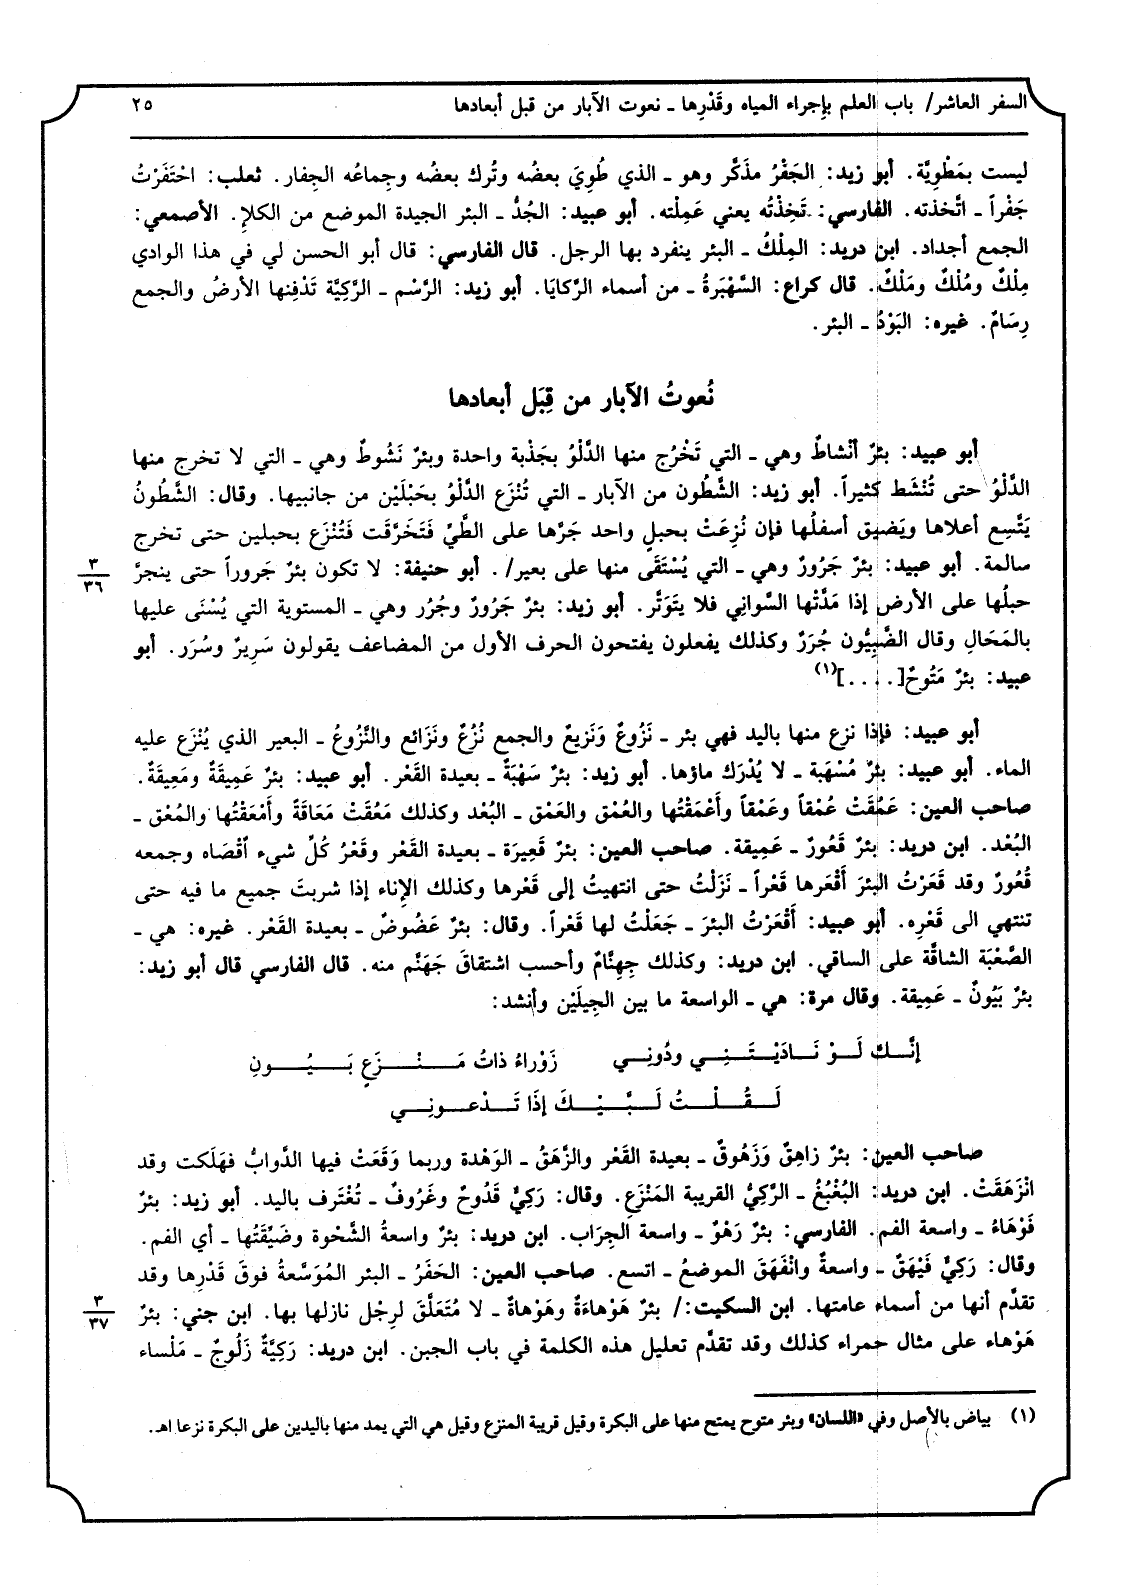 السفر العاشر/ باب العلم بإجراء المياه وقَدْرِها ـ نعوت الآبار من قبل أبعادها ٢٥
ليست بمَطْوِيَّة. أبو زيد: الجَفْرُ مذَكَّر وهو ـ الذي طُوِيَ بعضُه وتُرك بعضُه وجِماعُه الجِفار. ثعلب: احْتَفَرْتُ
جَفْراً ـ اتَّخذته. الفارسي: تَخِذْتُه يعني عَمِلْته. أبو عبيد: الجُدُّ ـ البئر الجيدة الموضع من الكلإ. الأصمعي:
الجمع أجداد. ابن دريد: المِلْكُ ـ البئر ينفرد بها الرجل. قال الفارسي: قال أبو الحسن لي في هذا الوادي
مِلْكٌ ومُلْكٌ ومَلْكٌ. قال كراع: السَّهْبَرةُ ـ من أسماء الرَّكايَا. أبو زيد: الرَّسْم ـ الرَّكِيَّة تَدْفِنها الأرضُ والجمع
رِسَامٌ. غيره: البَوْدُ ـ البئر.
نُعوتُ الآبار من قِبَل أبعادها
أبو عبيد: بئرٌ أنْشاطٌ وهي ـ التي تَخْرُج منها الدَّلْوُ بجَذْبة واحدة وبئرٌ نَشُوطٌ وهي ـ التي لا تخرج منها
الدَّلْوُ حتى تُنْشَط كثيراً. أبو زيد: الشَّطُون من الآبار ـ التي تُنْزَع الدَّلْوُ بحَبْلَيْن من جانبيها. وقال: الشَّطُونُ
يَتَّسِع أعلاها ويَضيق أسفلُها فإن نُزِعَتْ بحبلٍ واحد جَرَّها على الطَّيِّ فَتَخَرَّقَت فَتُنْزَع بحبلين حتى تخرج
سالمة. أبو عبيد: بئرٌ جَرُورٌ وهي ـ التي يُسْتَقَى منها على بعير/. أبو حنيفة: لا تكون بئرٌ جَروراً حتى ينجرَّ
٣
٣٦
حبلُها على الأرض إذا مَدَّتْها السَّواني فلا يتَوَتَّر. أبو زيد: بئرٌ جَرُورٌ وجُرُر وهي ـ المستوية التي يُسْنَى عليها
بالمَحَالِ وقال الضَّبِيُّون جُرَرٌ وكذلك يفعلون يفتحون الحرف الأول من المضاعف يقولون سَرِيرٌ وسُرَر. أبو
عبيد: بئرٌ مَتُوحٌ[....](١)
أبو عبيد: فإذا نزع منها باليد فهي بئر ـ نَزُوعٌ وَنَزيعٌ والجمع نُزُعٌ ونَزَائع والنَّزُوعُ ـ البعير الذي يُنْزَع عليه
الماء. أبو عبيد: بئرٌ مُسْهَبة ـ لا يُدْرَك ماؤها. أبو زيد: بئرٌ سَهْبَةٌ ـ بعيدة القَعْر. أبو عبيد: بئرٌ عَمِيقَةٌ ومَعِيقَةٌ.
صاحب العين: عَمُقَتْ عُمْقاً وعَمْقاً وأَعْمَقْتُها والعُمْق والعَمْق ـ البُعْد وكذلك مَعُقَتْ مَعَاقَةً وأَمْعَقْتُها والمُعْق ـ
البُعْد. ابن دريد: بئرٌ قَعُورٌ ـ عَمِيقة. صاحب العين: بئرٌ قَعِيرَة ـ بعيدة القَعْر وقَعْرُ كُلِّ شيء أقْصَاه وجمعه
قُعُورٌ وقد قَعَرْتُ البئرَ أَقْعَرها قَعْراً ـ نَزَلْتُ حتى انتهيتُ إلى قَعْرها وكذلك الإناء إذا شربتَ جميع ما فيه حتى
تنتهي الى قَعْرِه. أبو عبيد: أَقْعَرْتُ البئرَ ـ جَعَلْتُ لها قَعْراً. وقال: بئرٌ عَضُوضٌ ـ بعيدة القَعْر. غيره: هي ـ
الصَّعْبَة الشاقَّة على الساقي. ابن دريد: وكذلك جِهِنَّامٌ وأحسب اشتقاقَ جَهَنَّم منه. قال الفارسي قال أبو زيد:
بئرٌ بَيُونٌ ـ عَمِيقة. وقال مرة: هي ـ الواسعة ما بين الجِيلَيْن وأنشد:
إنَّكَ لَوْ نَادَيْتَنِي ودُونِي زَوْراءُ ذاتُ مَنْزَعٍ بَيُونِ
لَقُلْتُ لَبَّيْكَ إذَا تَدْعونِي
صاحب العين: بئرٌ زاهِقٌ وَزَهُوقٌ ـ بعيدة القَعْر والزَّهَقُ ـ الوَهْدة وربما وَقَعَتْ فيها الدَّوابُّ فهَلَكت وقد
انْزَهَقَتْ. ابن دريد: البُغْبُغُ ـ الرَّكِيُّ القريبة المَنْزَعِ. وقال: رَكِيٌّ قَدُوحٌ وغَرُوفٌ ـ تُغْتَرف باليد. أبو زيد: بئرٌ
فَوْهَاءُ ـ واسعة الفم. الفارسي: بئرٌ رَهْوٌ ـ واسعة الجِرَاب. ابن دريد: بئرٌ واسعةُ الشَّحْوة وضَيِّقَتُها ـ أي الفم.
وقال: رَكِيٌّ فَيْهَقٌ ـ واسعةٌ وانْفَهَقَ الموضعُ ـ اتسع. صاحب العين: الحَفَرُ ـ البئر المُوَسَّعةُ فوقَ قَدْرِها وقد
تقدَّم أنها من أسماء عامتها. ابن السكيت:/ بئرٌ هَوْهاءَةٌ وهَوْهاةٌ ـ لا مُتَعَلَّقَ لرِجْل نازلها بها. ابن جني: بئرٌ
٣
٣٧
هَوْهاء على مثال حمراء كذلك وقد تقدَّم تعليل هذه الكلمة في باب الجبن. ابن دريد: رَكِيَّةٌ زَلُوجٌ ـ مَلْساء
(١) بياض بالأصل وفي «اللسان» وبئر متوح يمتح منها على البكرة وقيل قريبة المنزع وقيل هي التي يمد منها باليدين على البكرة نزعا اهـ.